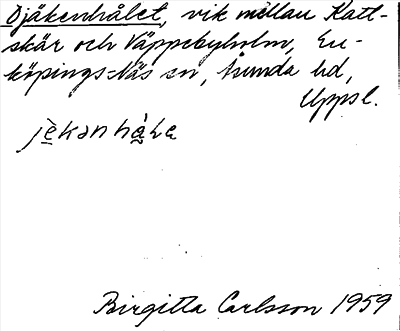 Djäkenhålet, vik mellan Katt-
skär och Väppebyholm, En-
köpings-Näs sn, Trunda hd,
Uppsl.
jè̱kənhà̰ɫa
Birgitta Carlsson 1959